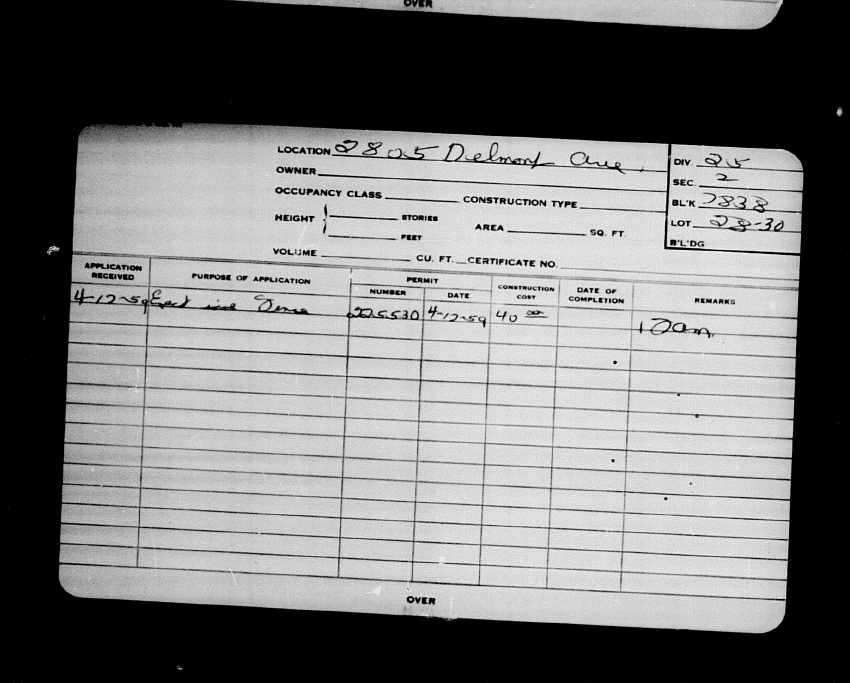 OVER
LOCATION 2805 Delmont Ave.
DIV. 25
OWNER
SEC. 2
OCCUPANCY CLASS CONSTRUCTION TYPE
BL'K 7838
HEIGHT STORIES AREA SQ. FT.
LOT 28-30
FEET
B'L'DG
VOLUME CU. FT. CERTIFICATE NO.
APPLICATION RECEIVED PURPOSE OF APPLICATION PERMIT NUMBER DATE CONSTRUCTION COST DATE OF COMPLETION REMARKS
4-12-59 Erect 225530 4-12-59 40 00
OVER